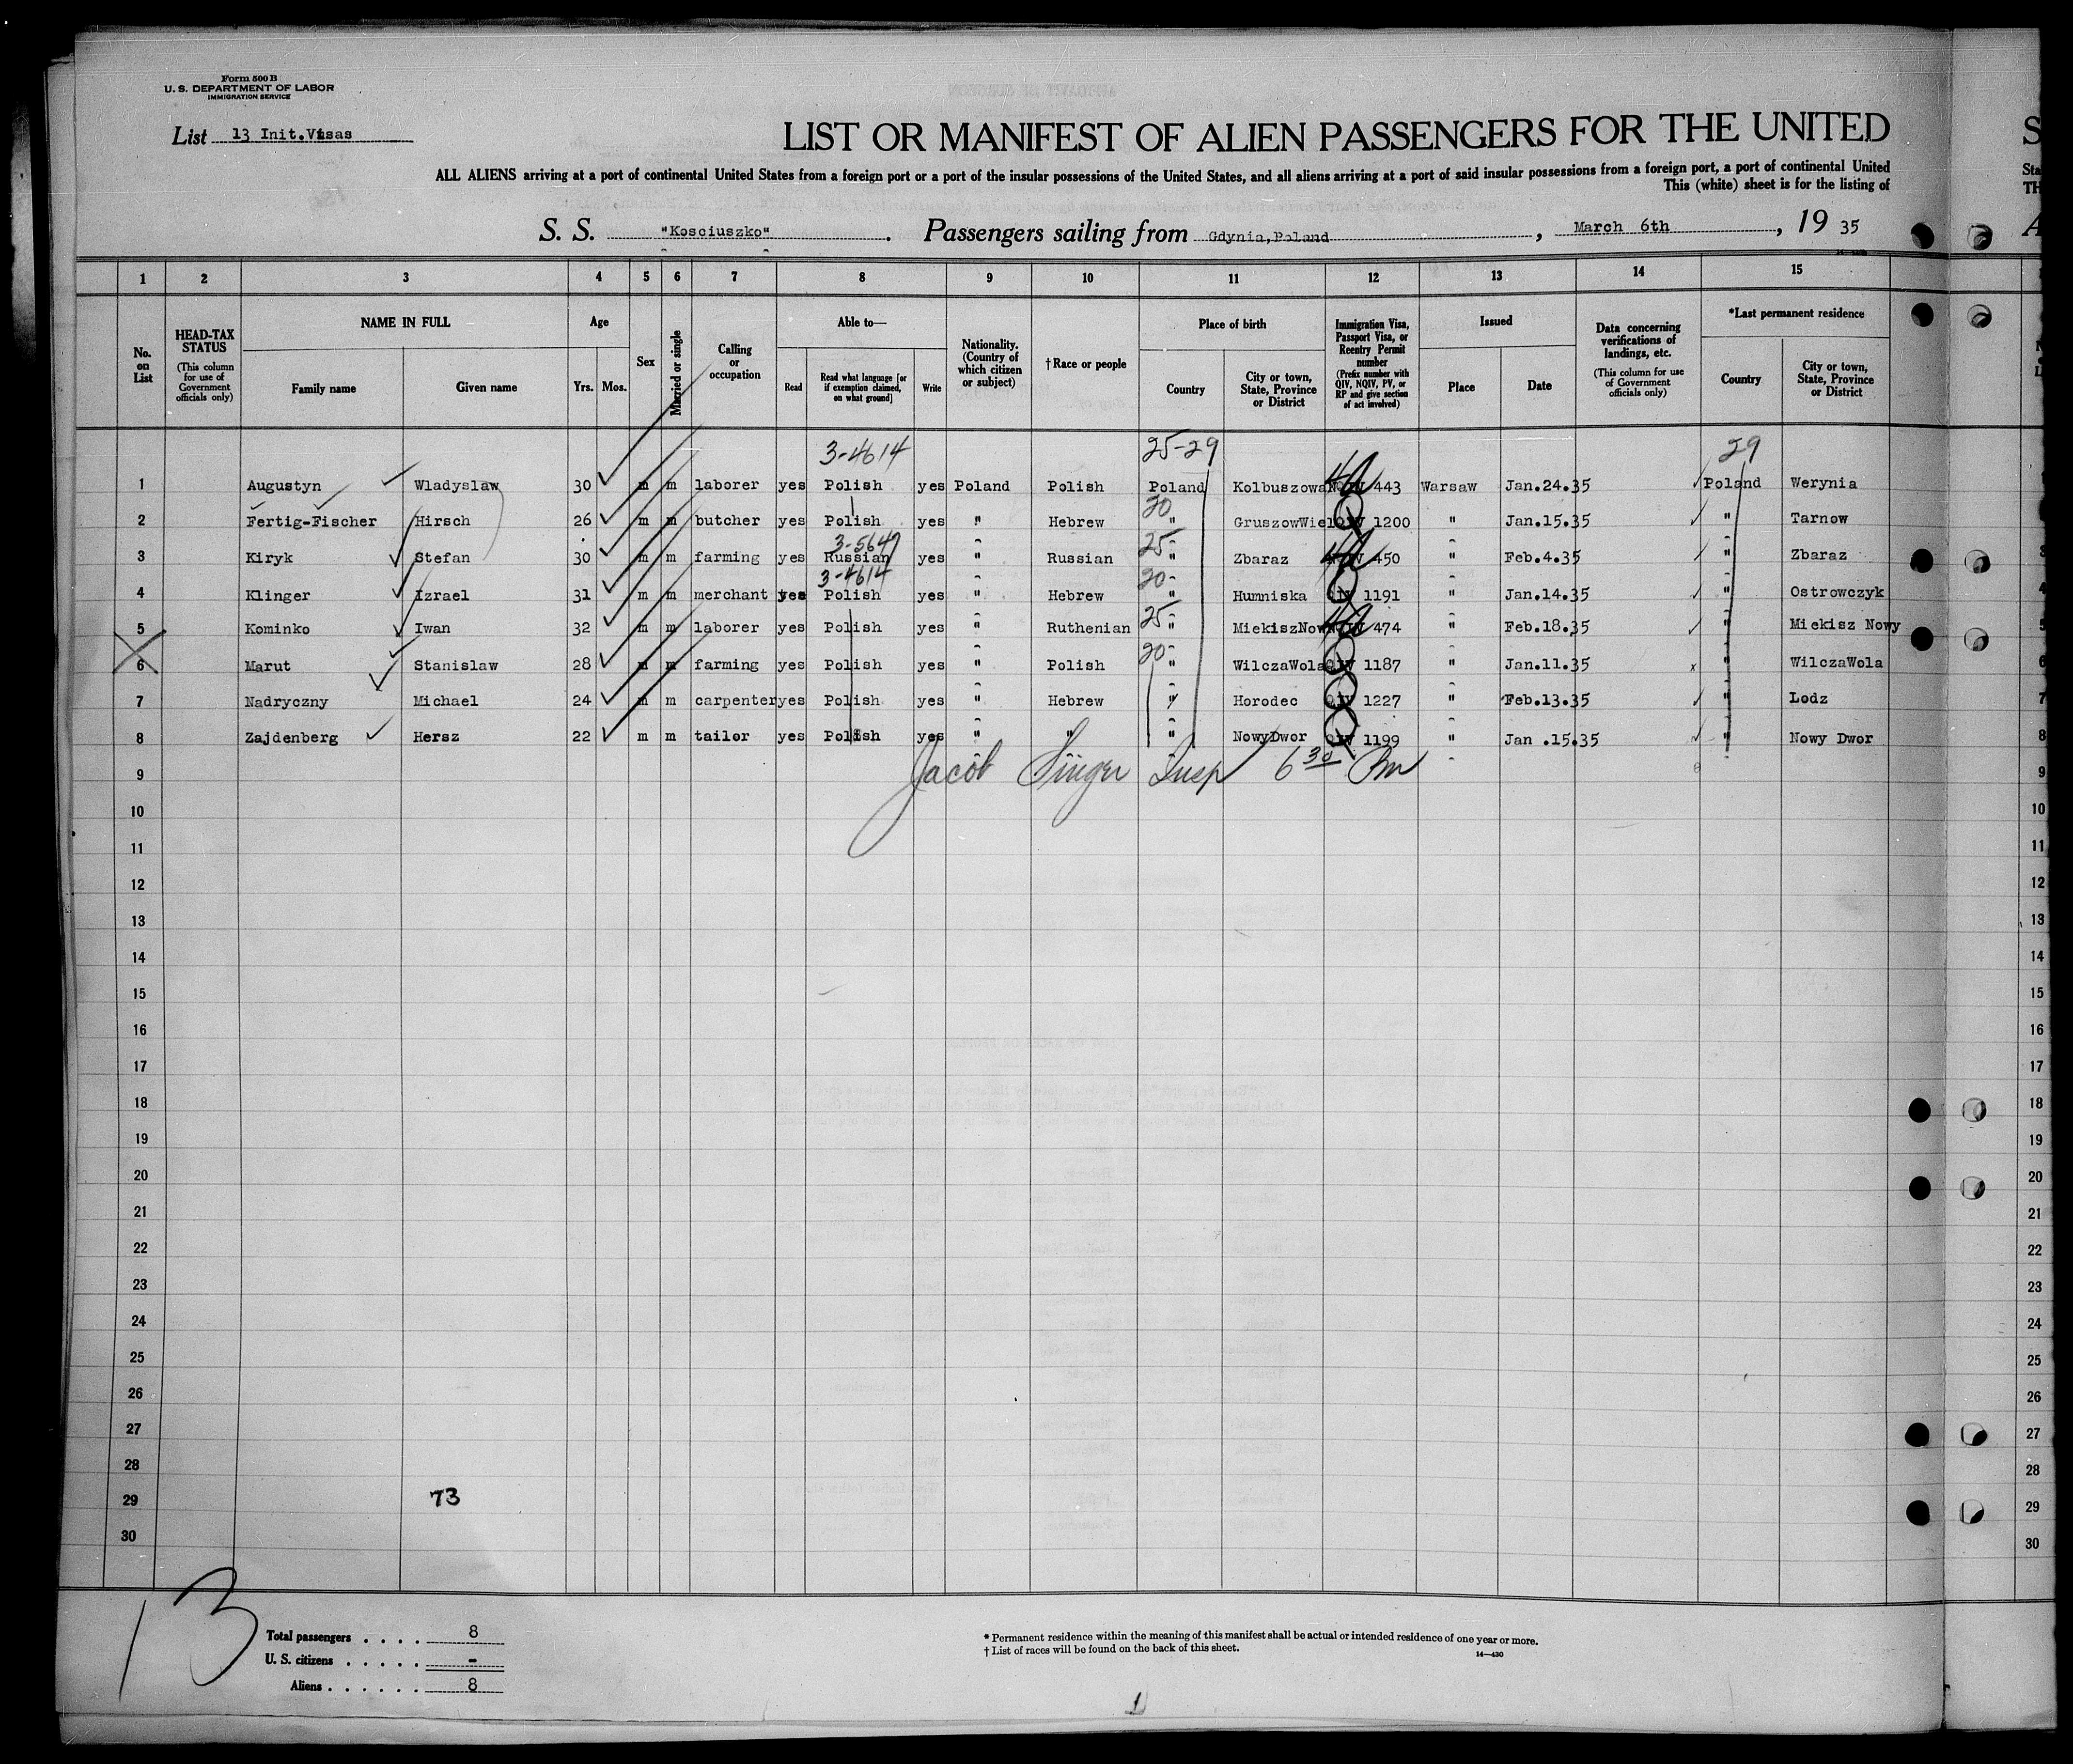 Form 500 B
U. S. DEPARTMENT OF LABOR
IMMIGRATION SERVICE
List 13 Init.Visas
LIST OR MANIFEST OF ALIEN PASSENGERS FOR THE UNITED
ALL ALIENS arriving at a port of continental United States from a foreign port or a port of the insular possessions of the United States, and all aliens arriving at a port of said insular possessions from a foreign port, a port of continental United
This (white) sheet is for the listing of
S. S. "Kosciuszko". Passengers sailing from Gdynia,Poland, March 6th, 19 35
1 2 3 4 5 6 7 8 9 10 11 12 13 14 15
No. on List
HEAD-TAX STATUS (This column for use of Government officials only)
NAME IN FULL Family name Given name
Age Yrs. Mos.
Sex
Married or single
Calling or occupation
Able to— Read Read what language [or if exemption claimed, on what ground] Write
Nationality. (Country of which citizen or subject)
† Race or people
Place of birth Country City or town, State, Province or District
Immigration Visa, Passport Visa, or Reentry Permit number (Prefix number with QIV, NQIV, PV, or RP and give section of act involved)
Issued Place Date
Data concerning verifications of landings, etc. (This column for use of Government officials only)
*Last permanent residence Country City or town, State, Province or District
3-4614 25-29 29
1 Augustyn Wladyslaw 30 m m laborer yes Polish yes Poland Polish Poland Kolbuszowa 443 Warsaw Jan.24.35 Poland Werynia
20
2 Fertig-Fischer Hirsch 26 m m butcher yes Polish yes " Hebrew " GruszowWiel QIV 1200 " Jan.15.35 " Tarnow
3-5647 25
3 Kiryk Stefan 30 m m farming yes Russian yes " Russian " Zbaraz 450 " Feb.4.35 " Zbaraz
3-4614 20
4 Klinger Izrael 31 m m merchant yes Polish yes " Hebrew " Humniska 1191 " Jan.14.35 " Ostrowczyk
25
5 Kominko Iwan 32 m m laborer yes Polish yes " Ruthenian " MiekiszNowy 474 " Feb.18.35 " Miekisz Nowy
20
6 Marut Stanislaw 28 m m farming yes Polish yes " Polish " WilczaWola QIV 1187 " Jan.11.35 " WilczaWola
7 Nadryczny Michael 24 m m carpenter yes Polish yes " Hebrew " Horodec QIV 1227 " Feb.13.35 " Lodz
8 Zajdenberg Hersz 22 m m tailor yes Polish yes " " " NowyDwor QIV 1199 " Jan .15.35 " Nowy Dwor
9 Jacob Singer Insp 6 30 Pm 9
10 10
11 11
12 12
13 13
14 14
15 15
16 16
17 17
18 18
19 19
20 20
21 21
22 22
23 23
24 24
25 25
26 26
27 27
28 28
29 73 29
30 30
13
Total passengers . . . . 8
U. S. citizens . . . . . -
Aliens . . . . . . 8
* Permanent residence within the meaning of this manifest shall be actual or intended residence of one year or more.
† List of races will be found on the back of this sheet.
14—430
1